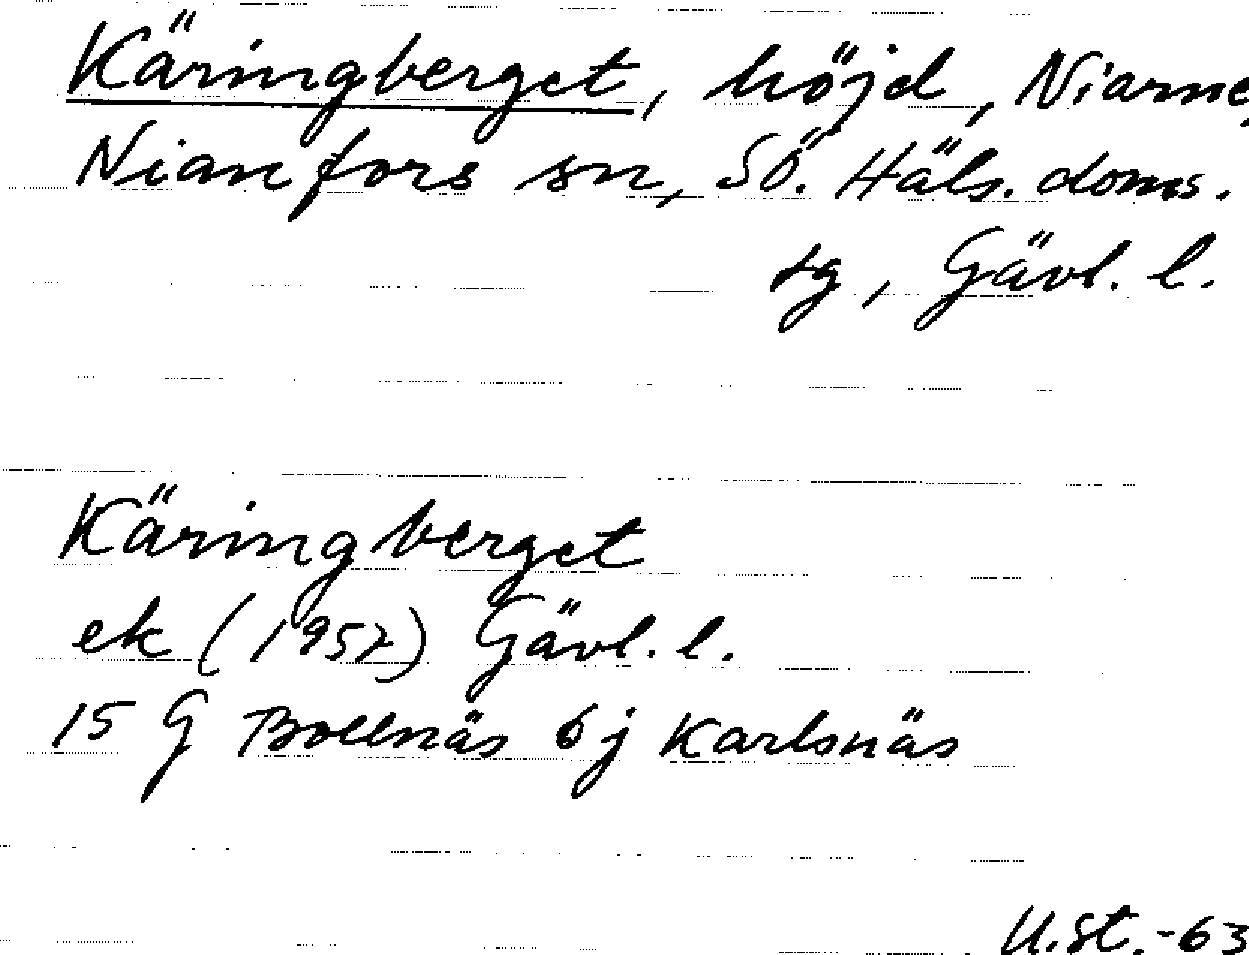 Käringberget, höjd, Niarne,
Nianfors sn, SÖ. Häls. doms.
tg, Gävl. l.
Käringberget
ek (1952) Gävl. l.
15 G Bollnäs 6j Karlsnäs
U.St.-63